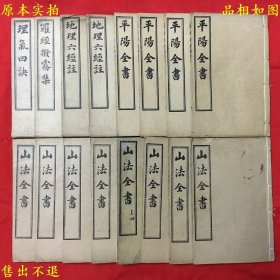 原本实拍
诚信经营
理氣四訣
羅經撥霧集
地理六經註
地理六經註
平陽全書
平陽全書
平陽全書
平陽全書
山法全書
山法全書
山法全書
山法全書
山法全書
山法全書
山法全書
山法全書
售出不退
本店声明